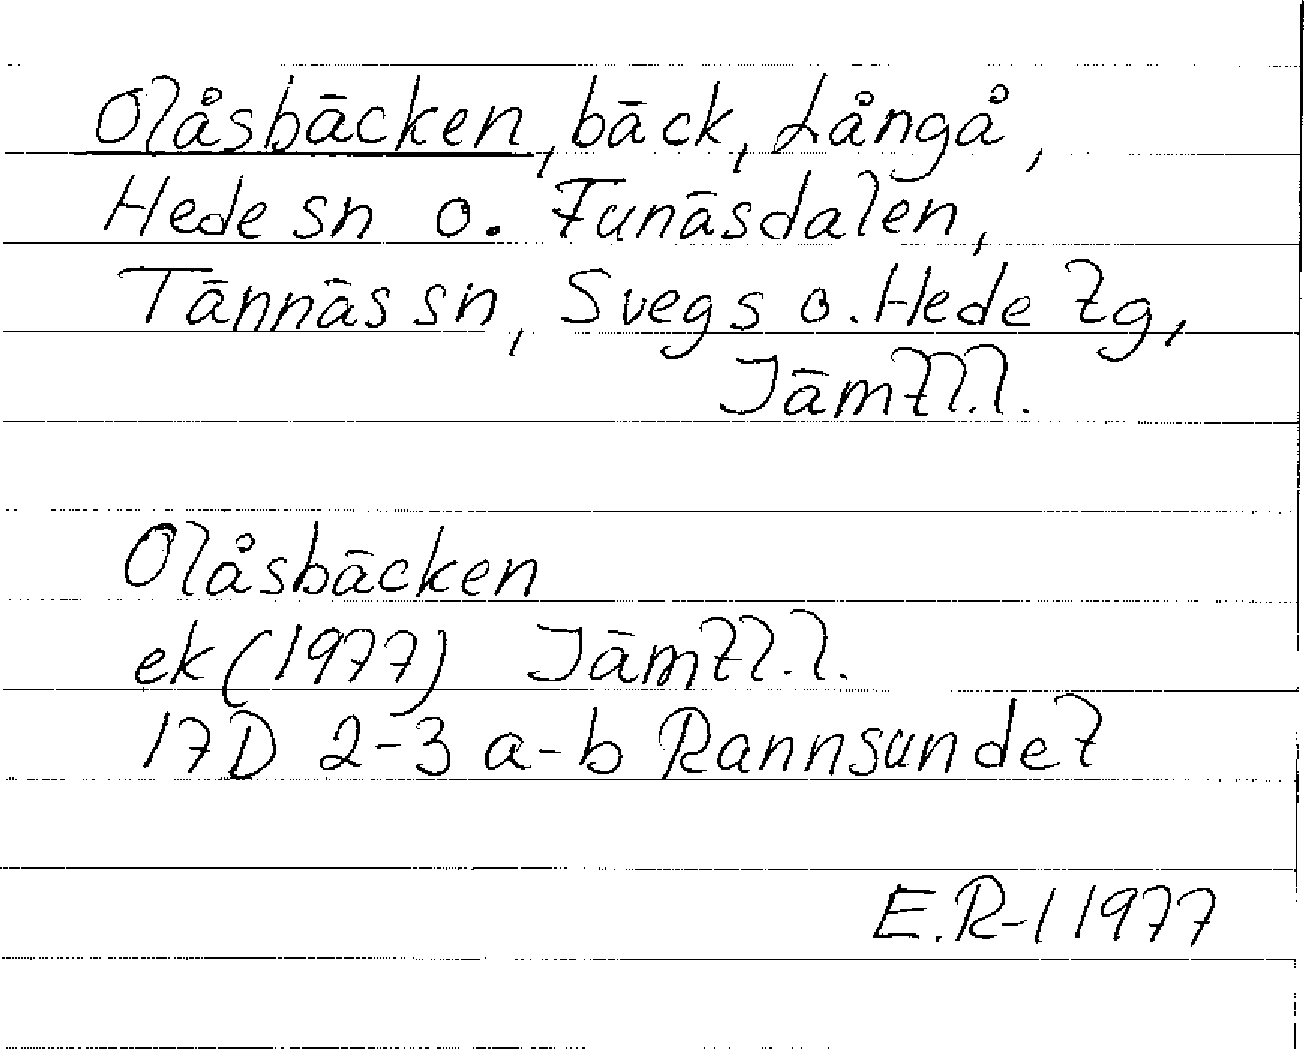 Olåsbäcken, bäck, Långå,
Hede sn o. Funäsdalen,
Tännäs sn, Svegs o. Hede tg,
Jämtl.l.
Olåsbäcken
ek (1977) Jämtl.l.
17D 2-3 a-b Rannsundet
E.R-l 1977